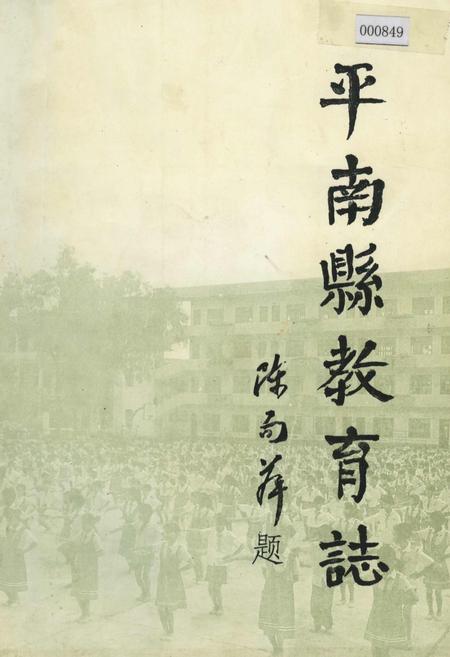 000849
平南縣教育誌
陈雨萍题